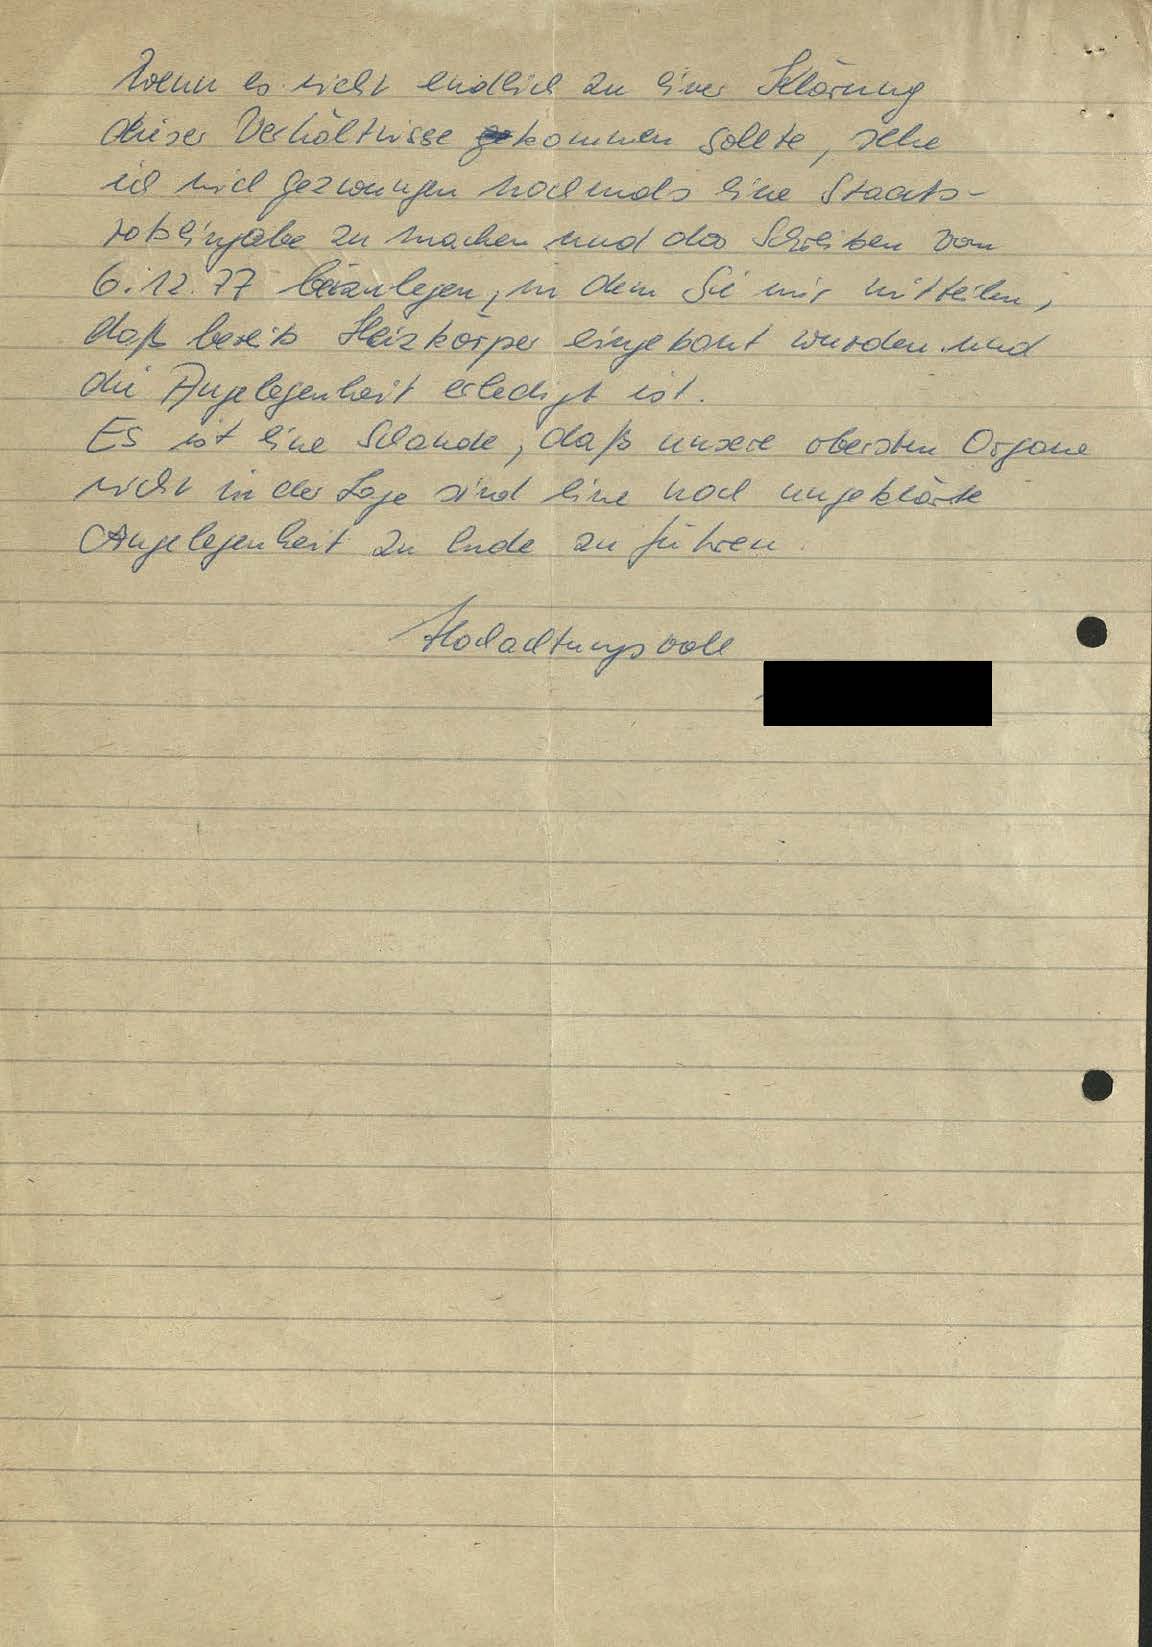 Wenn es nicht endlich zu einer Klärung
dieser Verhältnisse kommen sollte, sehe
ich mich gezwungen nochmals eine Staats-
ratseingabe zu machen und das Schreiben vom
6.12.77 beizulegen, in dem Sie mir mitteilen,
daß bereits Heizkörper eingebaut wurden und
die Angelegenheit erledigt ist.
Es ist eine Schande, daß unsere obersten Organe
nicht in der Lage sind eine noch ungeklärte
Angelegenheit zu Ende zu führen.
Hochachtungsvoll